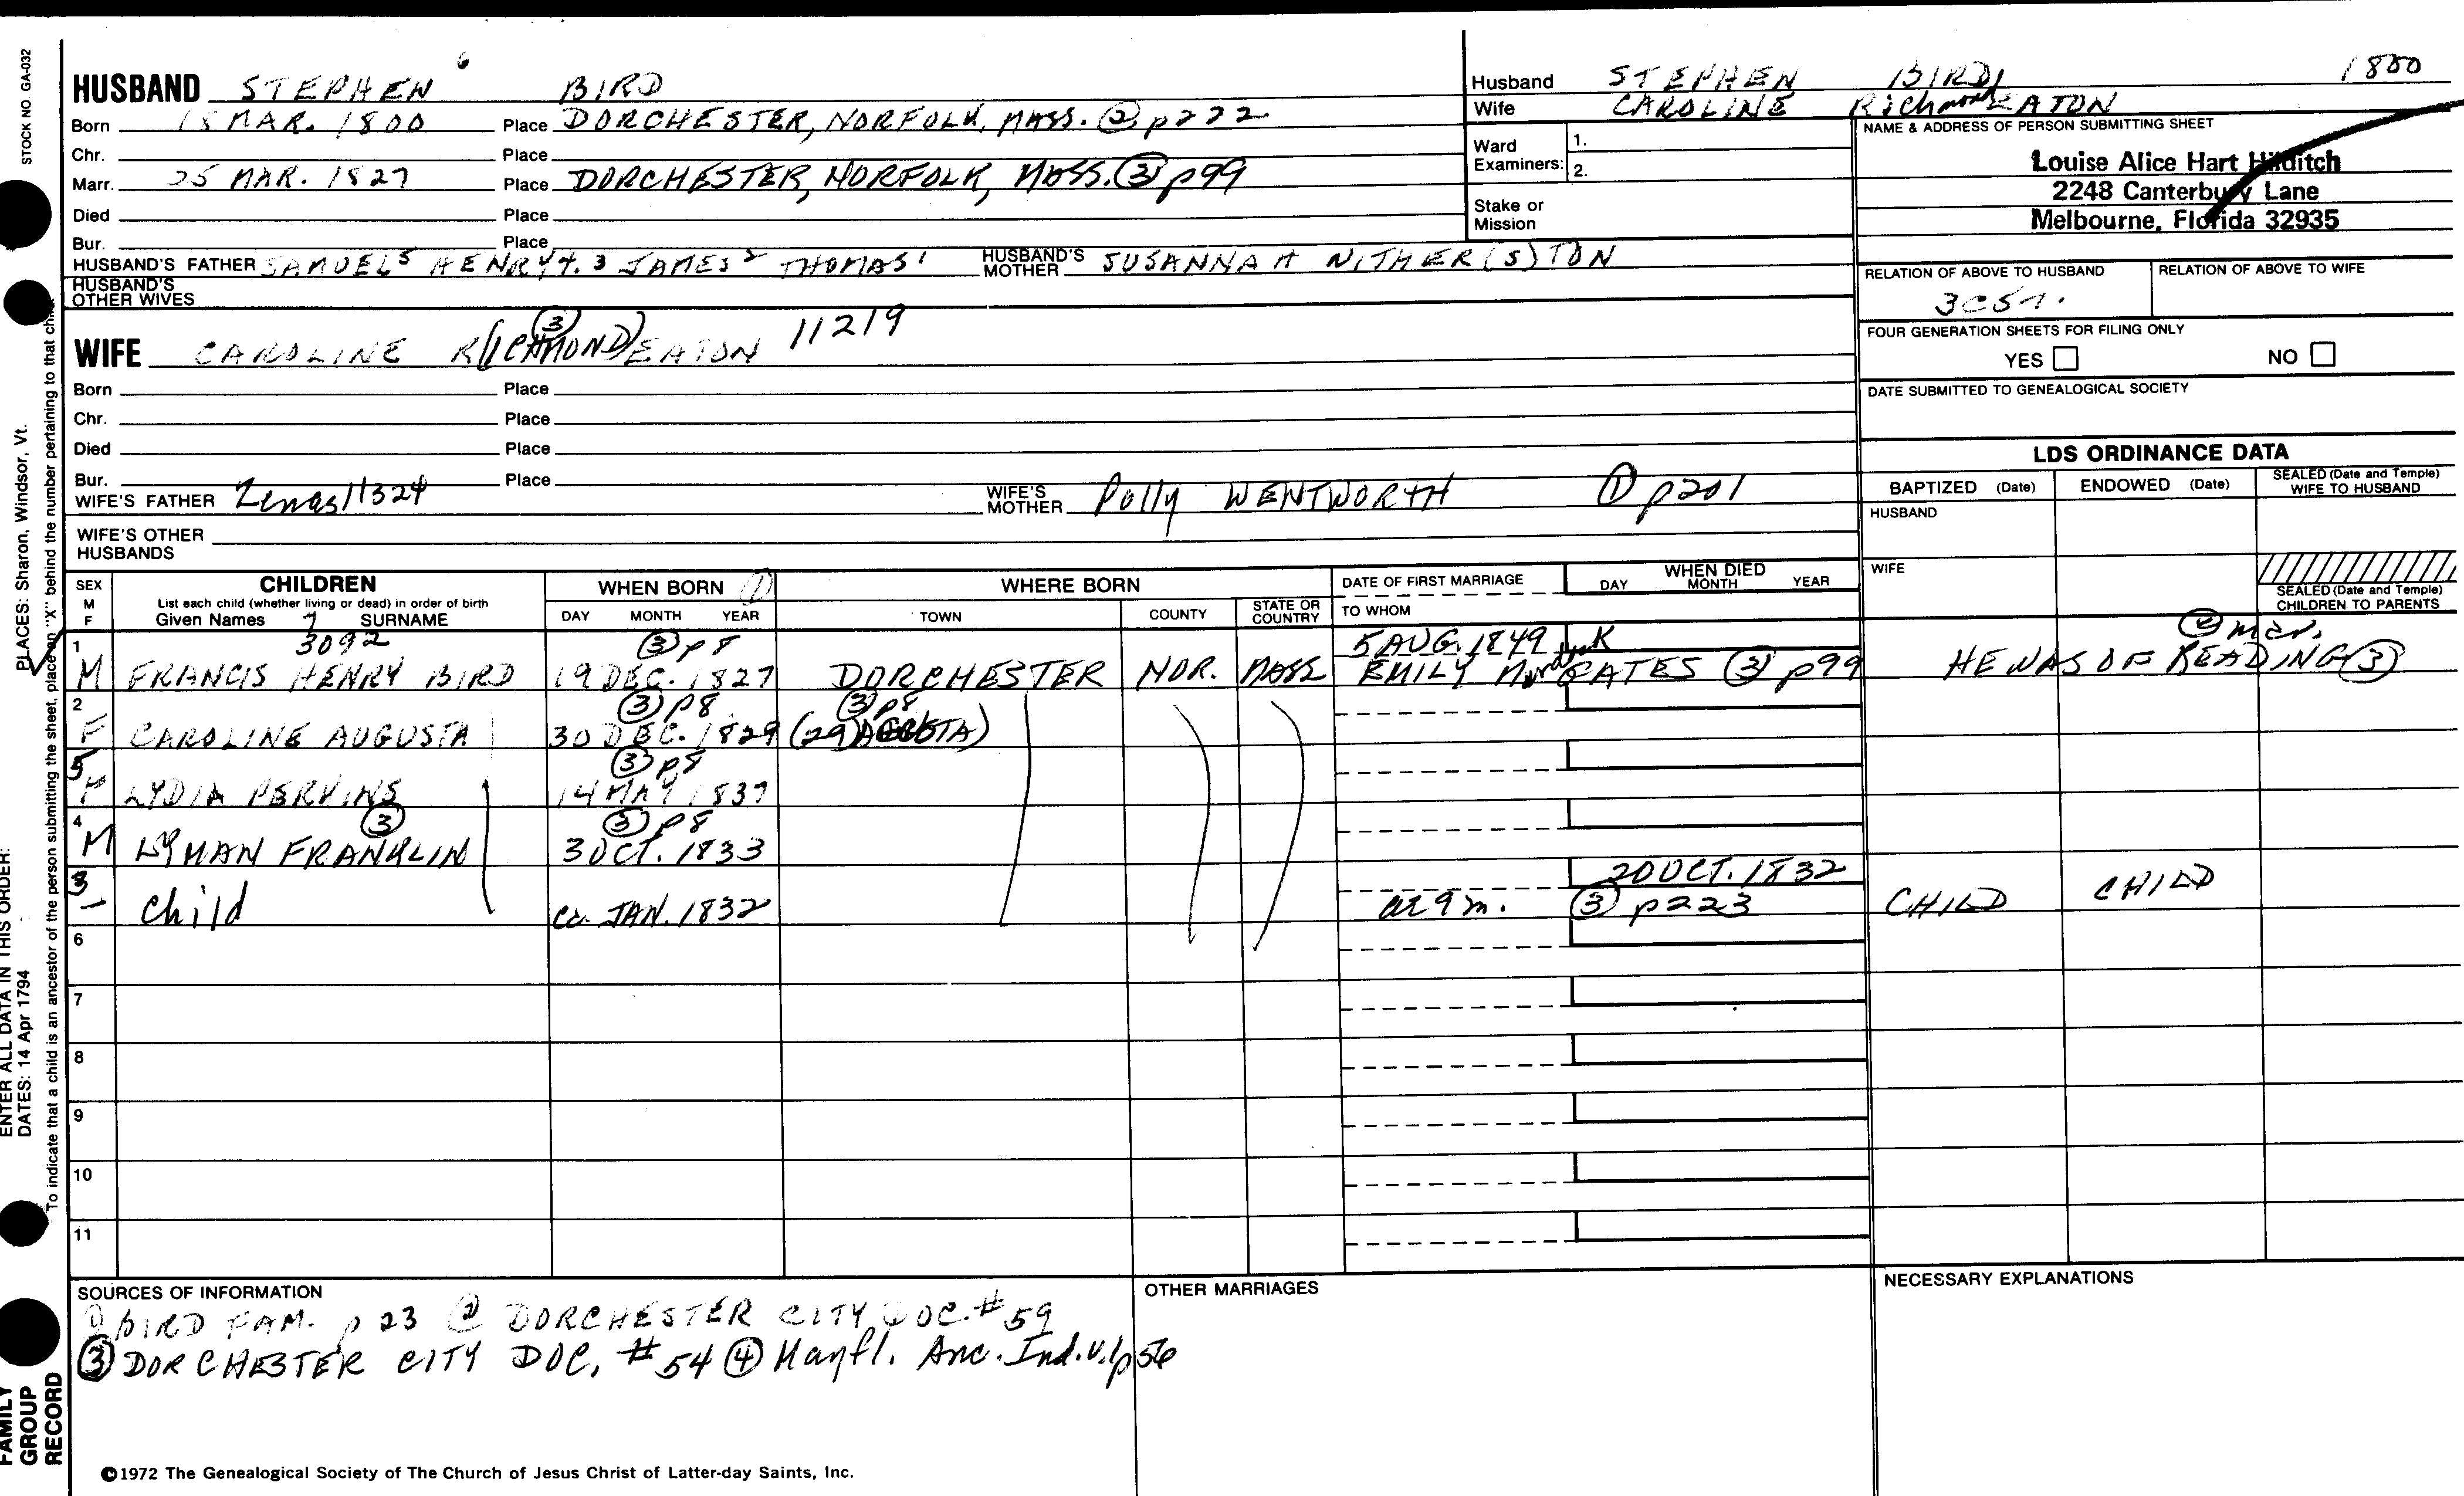 STOCK NO GA-032
HUSBAND STEPHEN 6 BIRD
Born 15 MAR. 1800 Place DORCHESTER, NORFOLK, MASS. ② p222
Chr. Place
Marr. 25 MAR. 1827 Place DORCHESTER, NORFOLK, MASS. ③ p99
Died Place
Bur. Place
HUSBAND'S FATHER SAMUEL 5 HENRY 4. 3 JAMES 2 THOMAS 1 HUSBAND'S MOTHER SUSANNAH NITHER(S)TON
HUSBAND'S OTHER WIVES
Husband STEPHEN BIRD 1800
Wife CAROLINE Richmond EATON
Ward Examiners: 1.
2.
Stake or Mission
NAME & ADDRESS OF PERSON SUBMITTING SHEET
Louise Alice Hart Hilditch
2248 Canterbury Lane
Melbourne, Florida 32935
RELATION OF ABOVE TO HUSBAND RELATION OF ABOVE TO WIFE
FOUR GENERATION SHEETS FOR FILING ONLY
YES NO
DATE SUBMITTED TO GENEALOGICAL SOCIETY
WIFE CAROLINE R(ICHMOND) ③ EATON 11219
Born Place
Chr. Place
Died Place
Bur. Place
WIFE'S FATHER Zenas 11324 WIFE'S MOTHER Polly WENTWORTH ① p201
WIFE'S OTHER HUSBANDS
LDS ORDINANCE DATA
BAPTIZED (Date) ENDOWED (Date) SEALED (Date and Temple) WIFE TO HUSBAND
HUSBAND
WIFE
SEALED (Date and Temple) CHILDREN TO PARENTS
SEX M F CHILDREN WHEN BORN ① WHERE BORN DATE OF FIRST MARRIAGE WHEN DIED
List each child (whether living or dead) in order of birth
Given Names 7 SURNAME DAY MONTH YEAR TOWN COUNTY STATE OR COUNTRY TO WHOM DAY MONTH YEAR
1 3092 ③ p8 5 AUG. 1849
M FRANCIS HENRY BIRD 19 DEC. 1827 DORCHESTER NOR. MASS EMILY GATES ③ p99 HE WAS OF READING ③
2 ③ p8 ③ p8
F CAROLINE AUGUSTA 30 DEC. 1829 (29)
5 ③ p8
F LYDIA PERKINS 14 MAY 1837
4 ③ ③ p8
M LYMAN FRANKLIN 3 OCT. 1833
3 20 OCT. 1832
- Child ca. JAN. 1832 ae 9 m. ③ p223 CHILD CHILD
6
7
8
9
10
11
SOURCES OF INFORMATION OTHER MARRIAGES NECESSARY EXPLANATIONS
① BIRD FAM. p 23 ② DORCHESTER CITY DOC. # 59
③ DORCHESTER CITY DOC. # 54 ④ Mayfl. Anc. Ind. v.1 p56
©1972 The Genealogical Society of The Church of Jesus Christ of Latter-day Saints, Inc.
To indicate that a child is an ancestor of the person submitting the sheet, place an "X" behind the number pertaining to that child.
PLACES: Sharon, Windsor, Vt.
ENTER ALL DATA IN THIS ORDER:
DATES: 14 Apr 1794
FAMILY
GROUP
RECORD